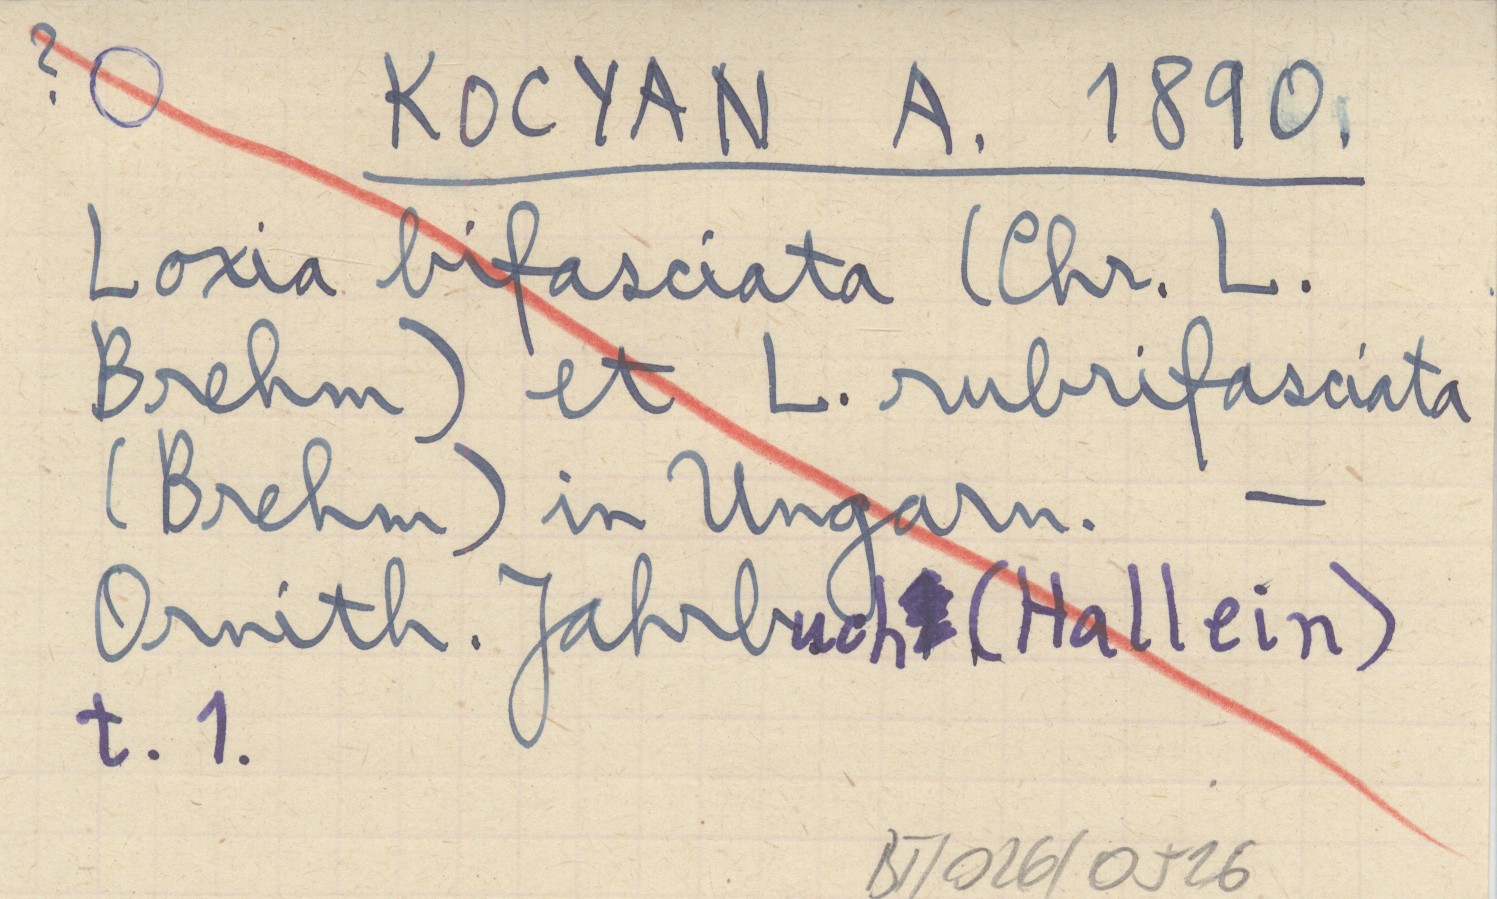 ? KOCYAN A. 1890.
Loxia bifasciata (Chr. L.
Brehm) et L. rubrifasciata
(Brehm) in Ungarn. —
Ornith. Jahrbuch (Hallein)
t. 1.
BT/026/0526